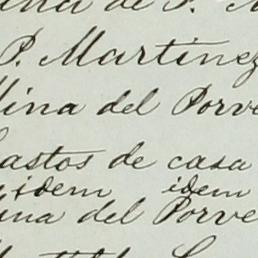 de P.
P. Martinez
Mina del Porve
Gastos de casa
idem idem
Mina del Porve